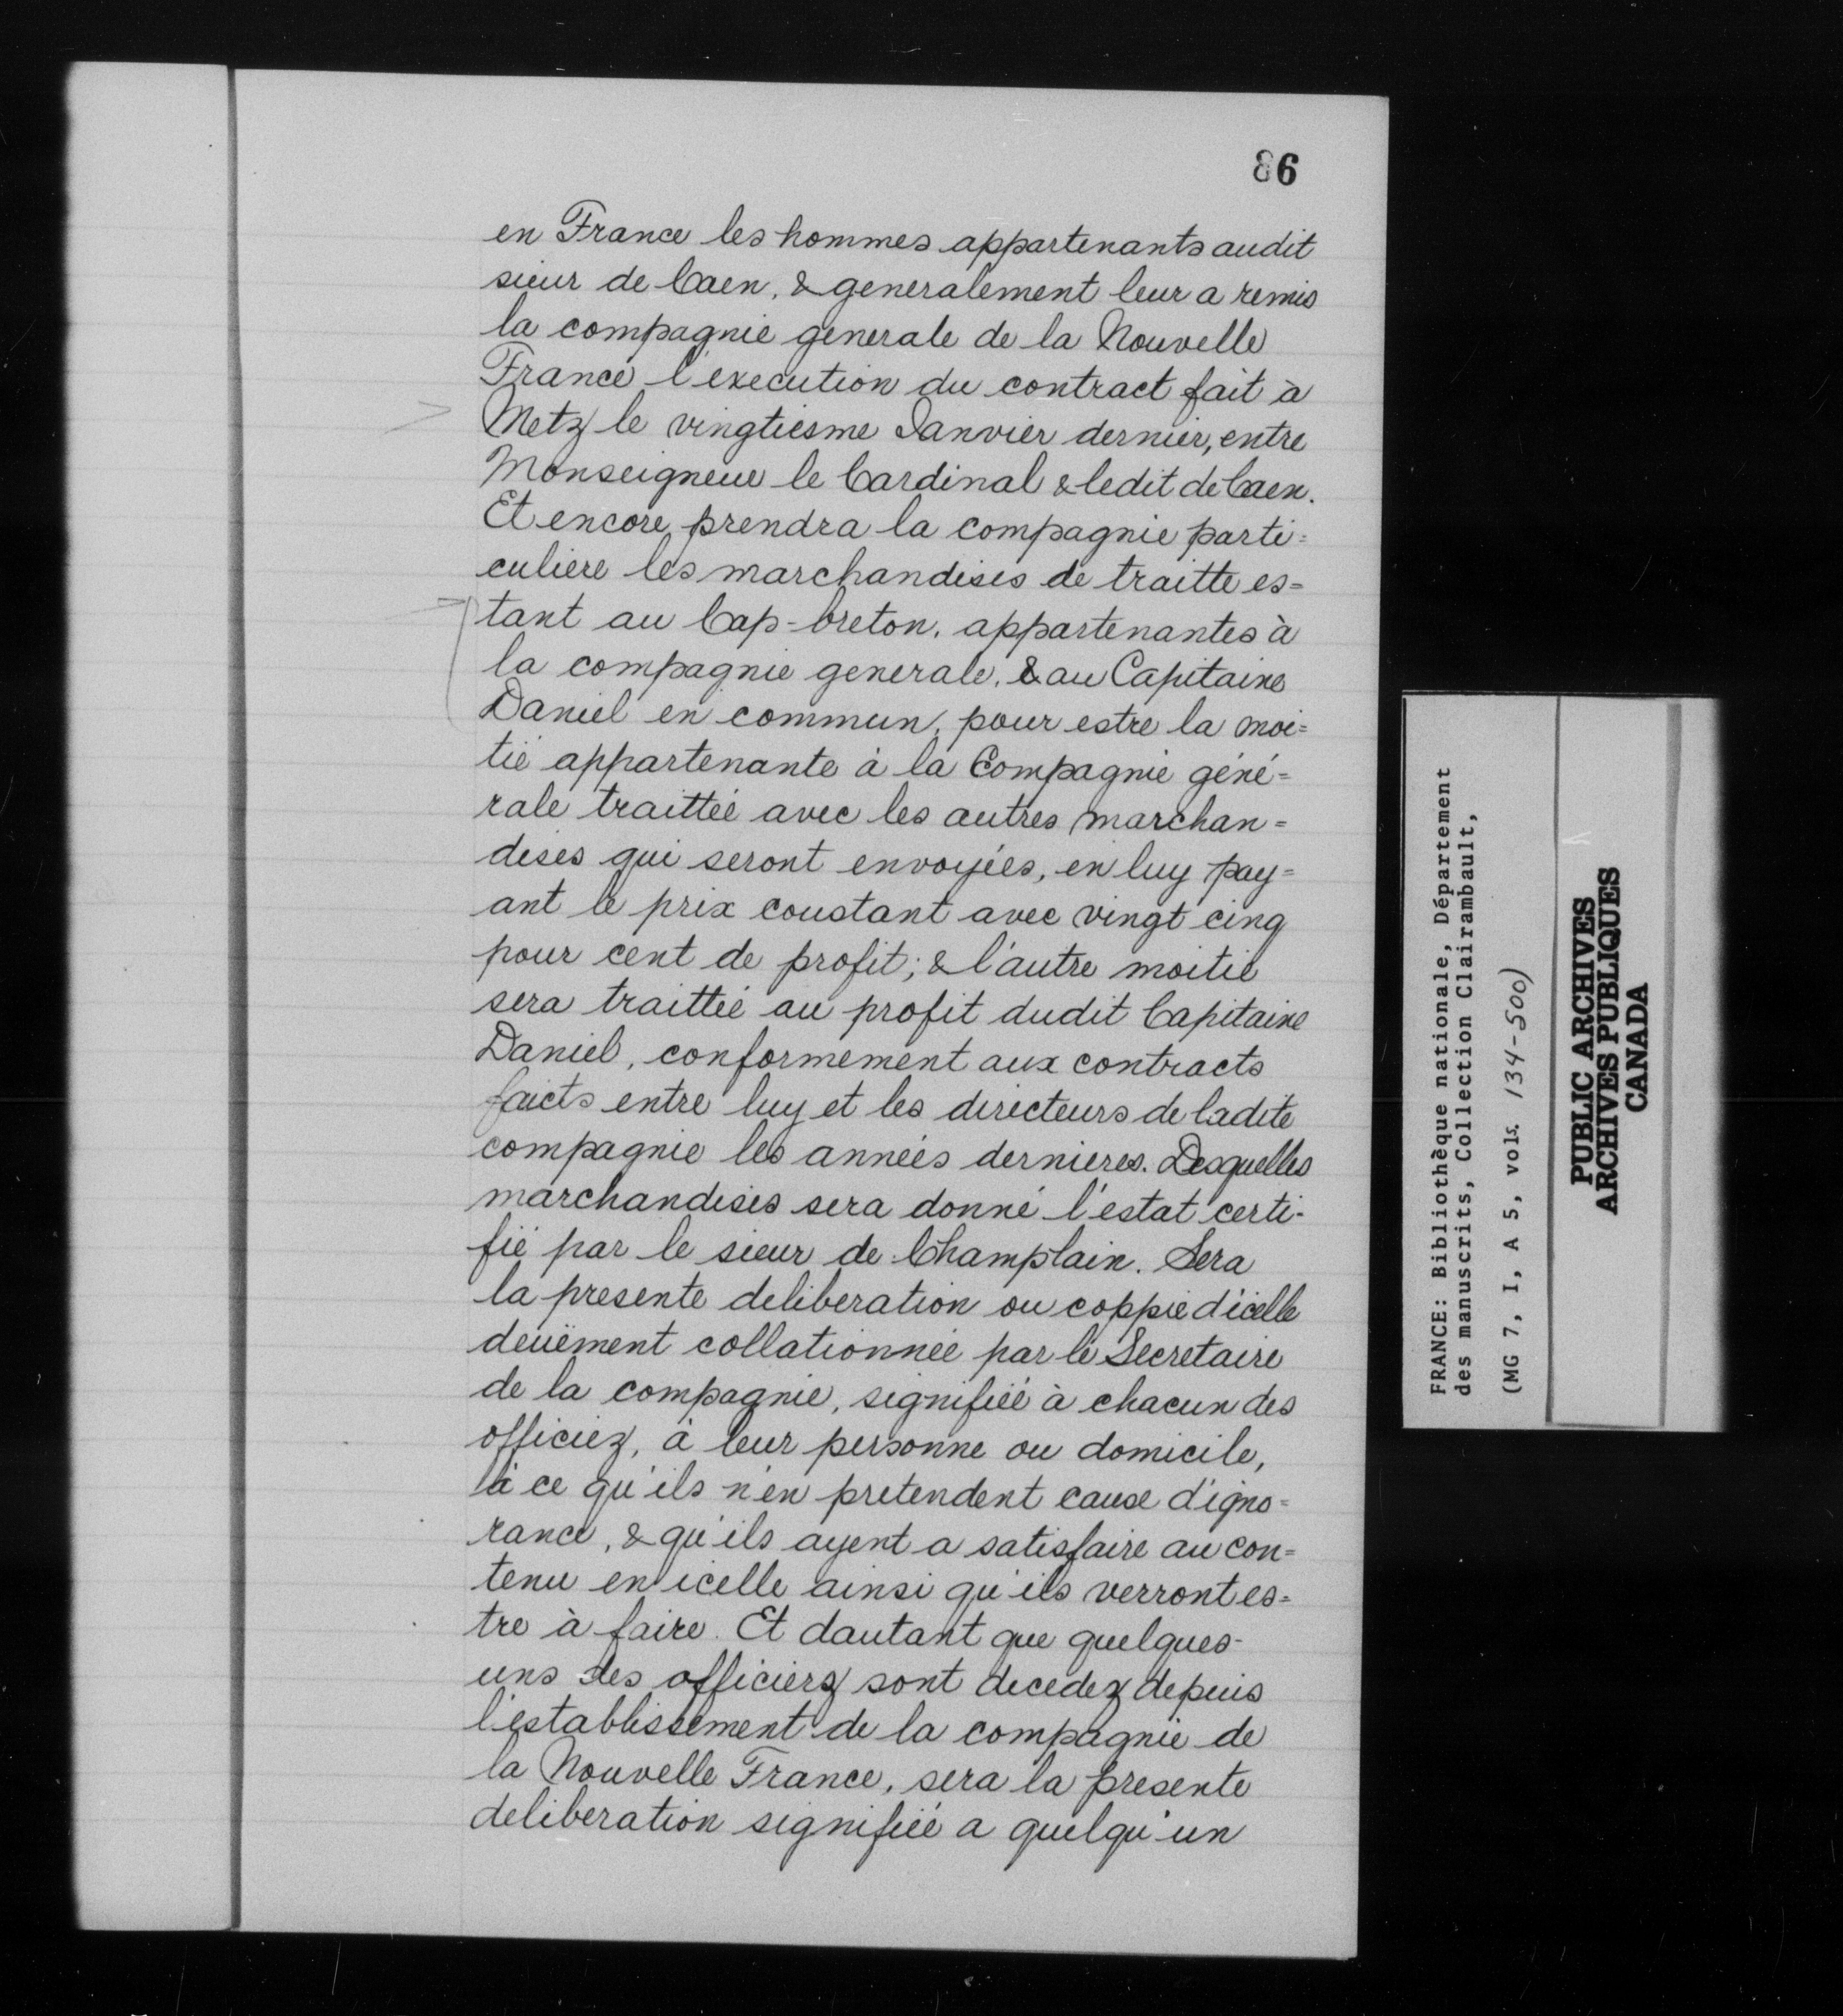 86
en France les hommes appartenants audit
sieur de Caen, & generalement leur a remis
la compagnie generale de la Nouvelle
France l'execution du contract fait à
Metz le vingtiesme Janvier dernier, entre
Monseigneur le Cardinal & ledit de Caen.
Et encore prendra la compagnie parti=
culiere les marchandises de traitte es=
tant au Cap-breton, appartenantes à
la compagnie generale, & au Capitaine
Daniel en commun, pour estre la moi=
tié appartenante à la Compagnie géné=
rale traittée avec les autres marchan=
dises qui seront envoyées, en luy pay=
ant le prix coustant avec vingt cinq
pour cent de profit; & l'autre moitié
sera traittée au profit dudit Capitaine
Daniel, conformement aux contracts
faicts entre luy et les directeurs de ladite
compagnie les années dernieres. Desquelles
marchandises sera donné l'estat certi-
fié par le sieur de Champlain. Sera
la presente deliberation ou coppie d'icelle
deuëment collationnée par le Secretaire
de la compagnie, signifiée à chacun des
officiez, à leur personne ou domicile,
à ce qu'ils n'en pretendent cause d'igno=
rance, & qu'ils ayent a satisfaire au con=
tenu en icelle ainsi qu'ils verront es=
tre à faire. Et dautant que quelques-
uns des officierz sont decedez depuis
l'establissement de la compagnie de
la Nouvelle France, sera la presente
deliberation signifiée a quelqu'un
FRANCE: Bibliothèque nationale, Département
des manuscrits, Collection Clairambault,
(MG 7, I, A 5, vols. 134-500)
PUBLIC ARCHIVES
ARCHIVES PUBLIQUES
CANADA